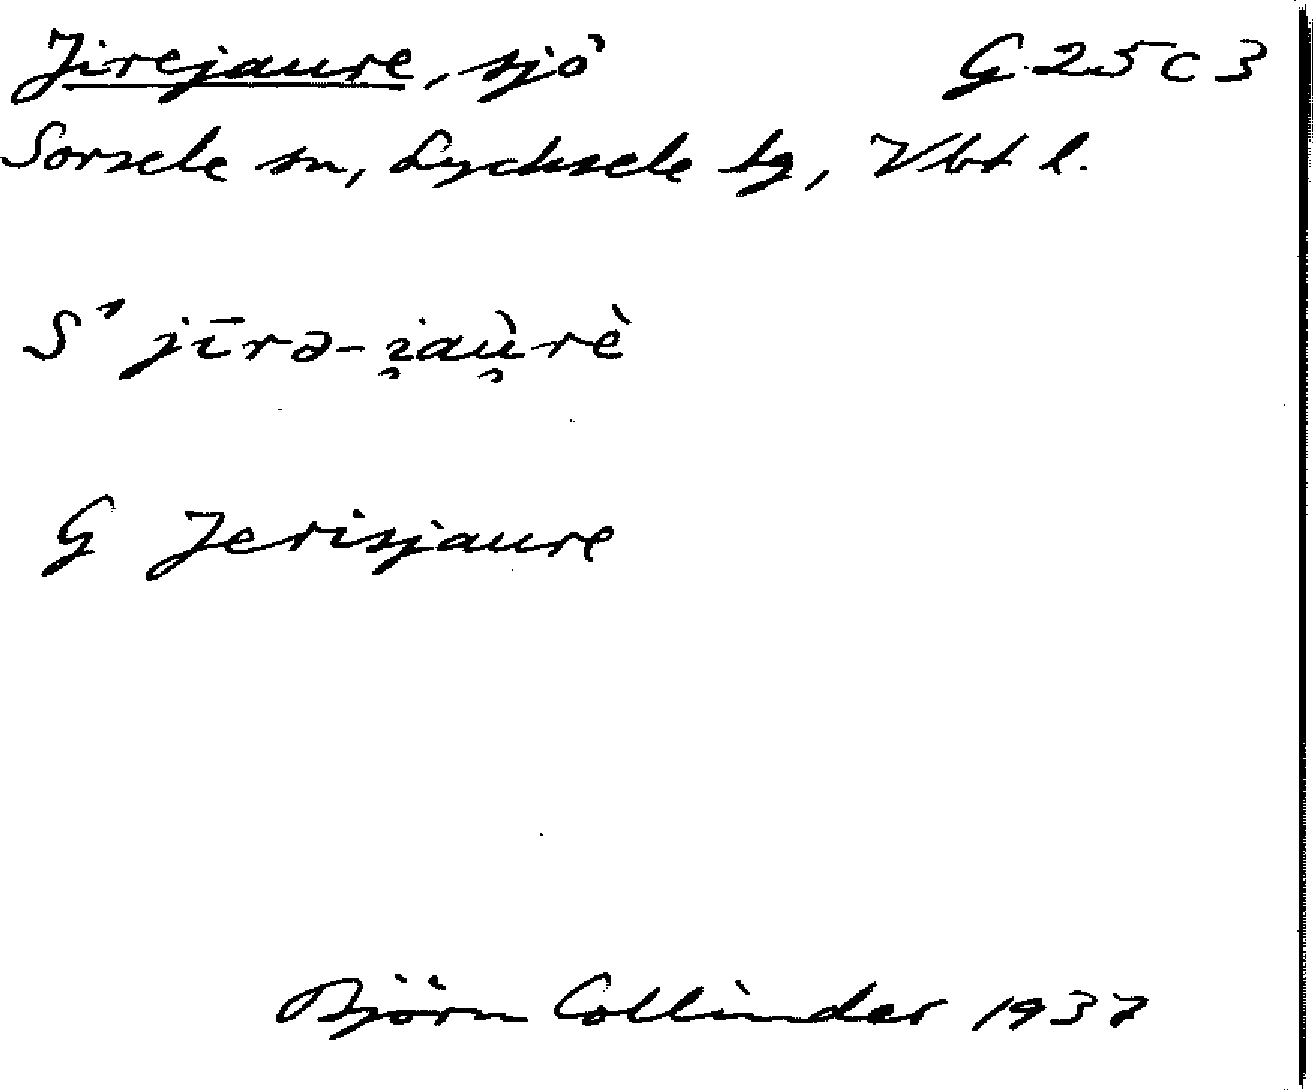 Jirejaure, sjö G 25 c 3
Sorsele sn, Lycksele tg, Vbt l.
S' jīrə-i̯aù̯rè
G Jerisjaure
Björn Collinder 1937